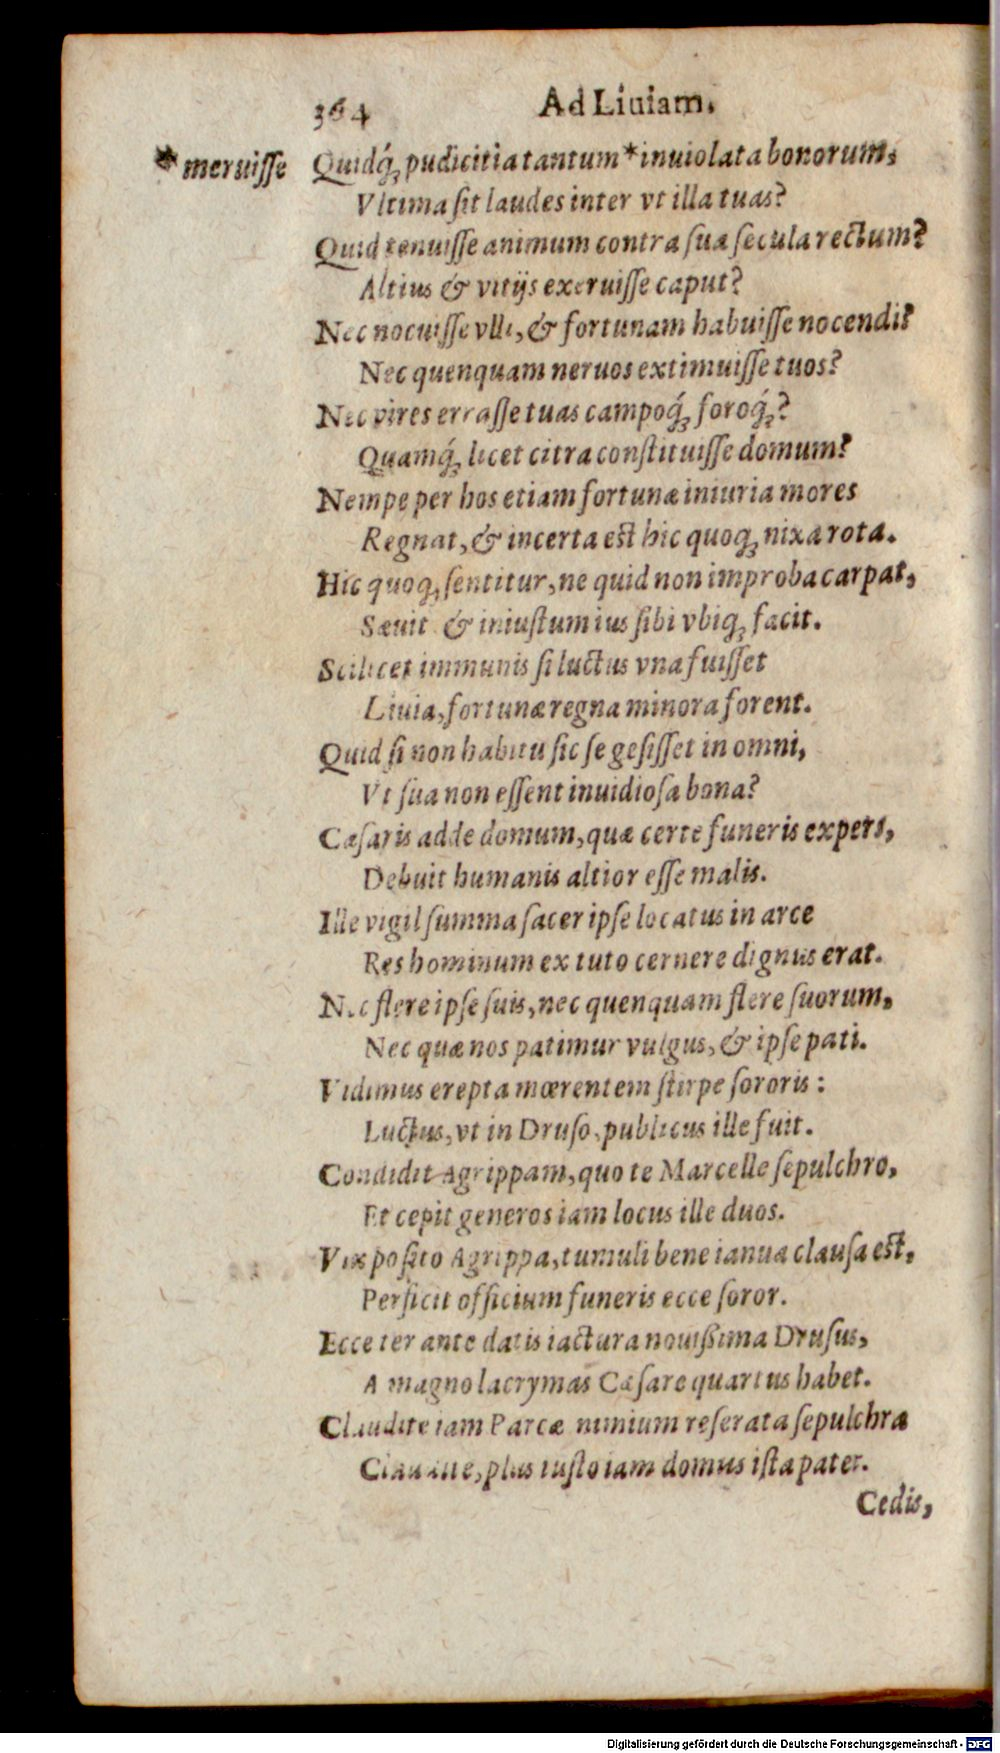 364 Ad Liuiam.
*meruisse
Quidq́ꝫ pudicitia tantum * inuiolata bonorum,
Vltima sit laudes inter vt illa tuas?
Quid tenuisse animum contra sua secula rectum?
Altius & vitijs exeruisse caput?
Nec nocuisse vlli, & fortunam habuisse nocendi?
Nec quenquam neruos extimuisse tuos?
Nec vires errasse tuas campoq́ꝫ foroq́ꝫ?
Quamq́ꝫ licet citra constituisse domum?
Nempe per hos etiam fortunæ iniuria mores
Regnat, & incerta est hic quoqꝫ nixa rota.
Hic quoqꝫ sentitur, ne quid non improba carpat,
Sæuit & iniustum ius sibi vbiqꝫ facit.
Scilicet immunis si luctus vna fuisset
Liuia, fortunæ regna minora forent.
Quid si non habitu sic se gesisset in omni,
Vt sua non essent inuidiosa bona?
Cæsaris adde domum, quæ certe funeris expers,
Debuit humanis altior esse malis.
Ille vigil summa sacer ipse locatus in arce
Res hominum ex tuto cernere dignus erat.
Nec flere ipse suis, nec quenquam flere suorum,
Nec quæ nos patimur vulgus, & ipse pati.
Vidimus erepta mœrentem stirpe sororis:
Luctus, vt in Druso, publicus ille fuit.
Condidit Agrippam, quo te Marcelle sepulchro,
Et cepit generos iam locus ille duos.
Vix posito Agrippa, tumuli bene ianua clausa est,
Perficit officium funeris ecce soror.
Ecce ter ante datis iactura nouißima Drusus,
A magno lacrymas Cæsare quartus habet.
Claudite iam Parcæ nimium reserata sepulchra
Claudite, plus iusto iam domus ista patet.
Cedis,
Digitalisierung gefördert durch die Deutsche Forschungsgemeinschaft - DFG